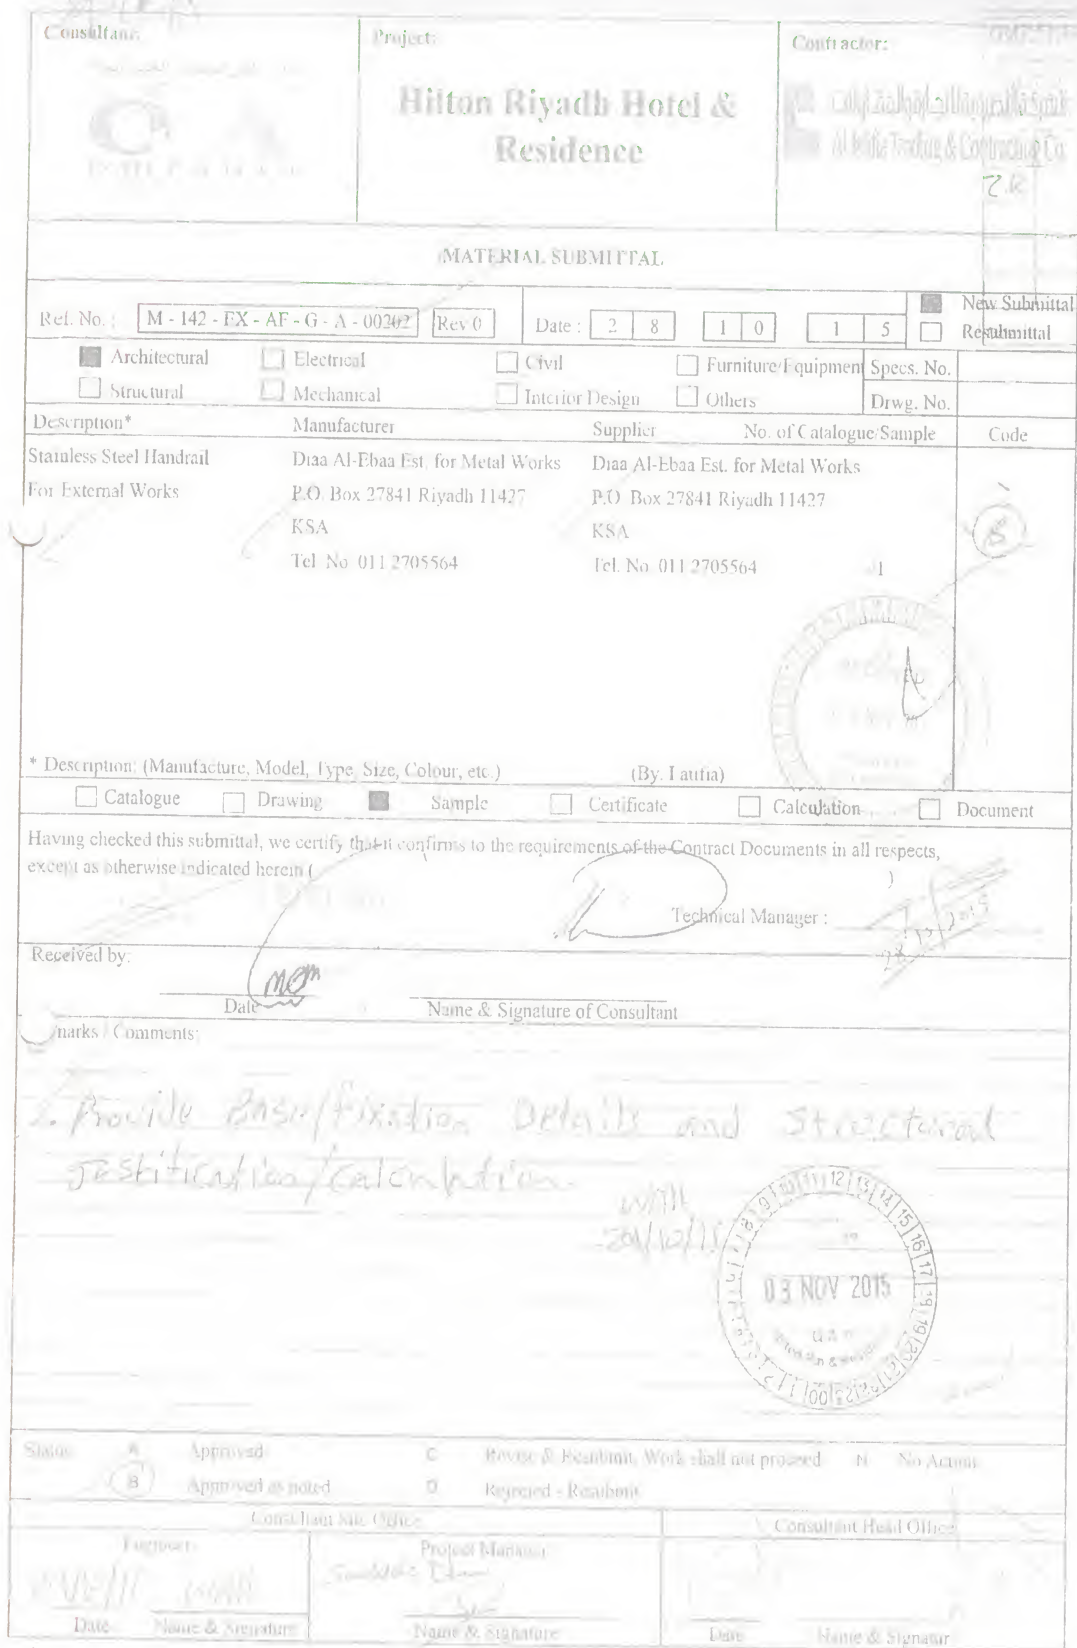 Consultant:
Project:
Contractor:
Hilton Riyadh Hotel &
Residence
Trading & Contracting Co.
MATERIAL SUBMITTAL
Ref. No. : M - 142 - EX - AF - G - A - 00202 Rev 0 Date : 2 8 1 0 1 5 New Submittal
Resubmittal
Architectural Electrical Civil Furniture/Equipment Specs. No.
Structural Mechanical Interior Design Others Drwg. No.
Description* Manufacturer Supplier No. of Catalogue/Sample Code
Stainless Steel Handrail Diaa Al-Ebaa Est. for Metal Works Diaa Al-Ebaa Est. for Metal Works
For External Works P.O. Box 27841 Riyadh 11427 P.O. Box 27841 Riyadh 11427
KSA KSA B
Tel. No. 011 2705564 Tel. No. 011 2705564 1
* Description: (Manufacture, Model, Type, Size, Colour, etc.) (By. Laufia)
Catalogue Drawing Sample Certificate Calculation Document
Having checked this submittal, we certify that it confirms to the requirements of the Contract Documents in all respects,
except as otherwise indicated herein ( )
Technical Manager :
28/10/2015
Received by:
Date Name & Signature of Consultant
marks / Comments:
Provide Base/Fixation Details and Structural
Justification/Calculation
03 NOV 2015
Status A Approved C Revise & Resubmit, Work shall not proceed N No Action
B Approved as noted D Rejected - Resubmit
Consultant Site Office Consultant Head Office
Engineer Project Manager
Date Name & Signature Name & Signature Date Name & Signatur